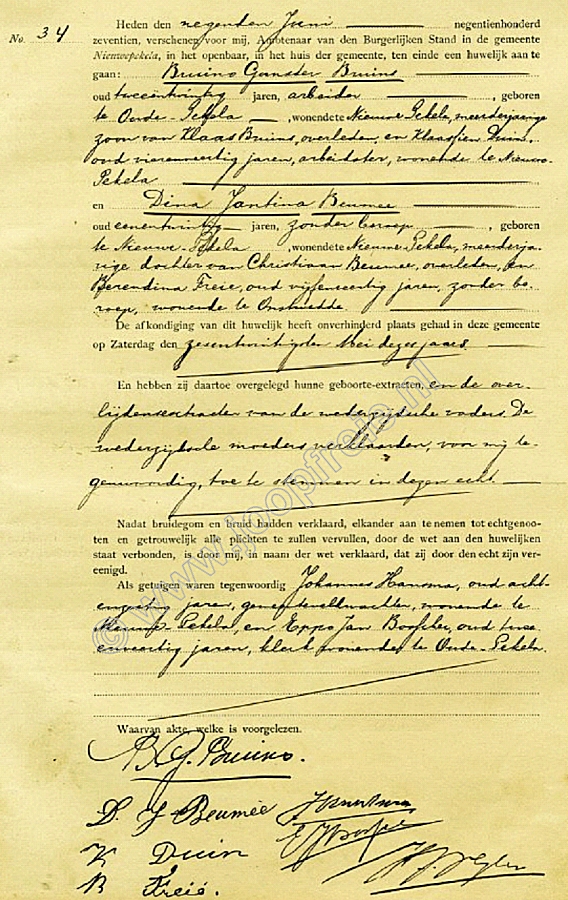 No. 34
Heden den negenden Juni negentienhonderd
zeventien, verschenen voor mij, Ambtenaar van den Burgerlijken Stand in de gemeente
Nieuwepekela, in het openbaar, in het huis der gemeente, ten einde een huwelijk aan te
gaan: Bruino Gonster Bruins
oud tweeentwintig jaren, arbeider, geboren
te Oude-Pekela, wonende te Nieuwe Pekela, meerderjarige
zoon van Klaas Bruins, overleden, en Klaassien Duin,
oud vierenveertig jaren, arbeidster, wonende te Nieuwe-
Pekela
en Dina Jantina Beumee
oud eenentwintig jaren, zonder beroep, geboren
te Nieuwe Pekela, wonende te Nieuwe Pekela, meerderja-
rige dochter van Christiaan Beumee, overleden, en
Berendina Freie, oud vijfenveertig jaren, zonder be-
roep, wonende te Onstwedde.
De afkondiging van dit huwelijk heeft onverhinderd plaats gehad in deze gemeente
op Zaterdag den zesentwintigsten Mei dezes jaars.
En hebben zij daartoe overgelegd hunne geboorte-extracten, en de over-
lijdensextracten van de wederzijdsche vaders. De
wederzijdsche moeders verklaarden, voor mij te-
genwoordig, toe te stemmen in dezen echt.
Nadat bruidegom en bruid hadden verklaard, elkander aan te nemen tot echtgenoo-
ten en getrouwelijk alle plichten te zullen vervullen, door de wet aan den huwelijken
staat verbonden, is door mij, in naam der wet verklaard, dat zij door den echt zijn ver-
eenigd.
Als getuigen waren tegenwoordig Johannes Hansma, oud acht-
enveertig jaren, gemeenteveldwachter, wonende te
Nieuwe-Pekela, en Eppo Jan , oud twee
enveertig jaren, klerk wonende te Oude-Pekela.
Waarvan akte, welke is voorgelezen.
B. G. Bruins.
D. J Beumée
K Duin
B Freië.
© www.joopfreie.nl